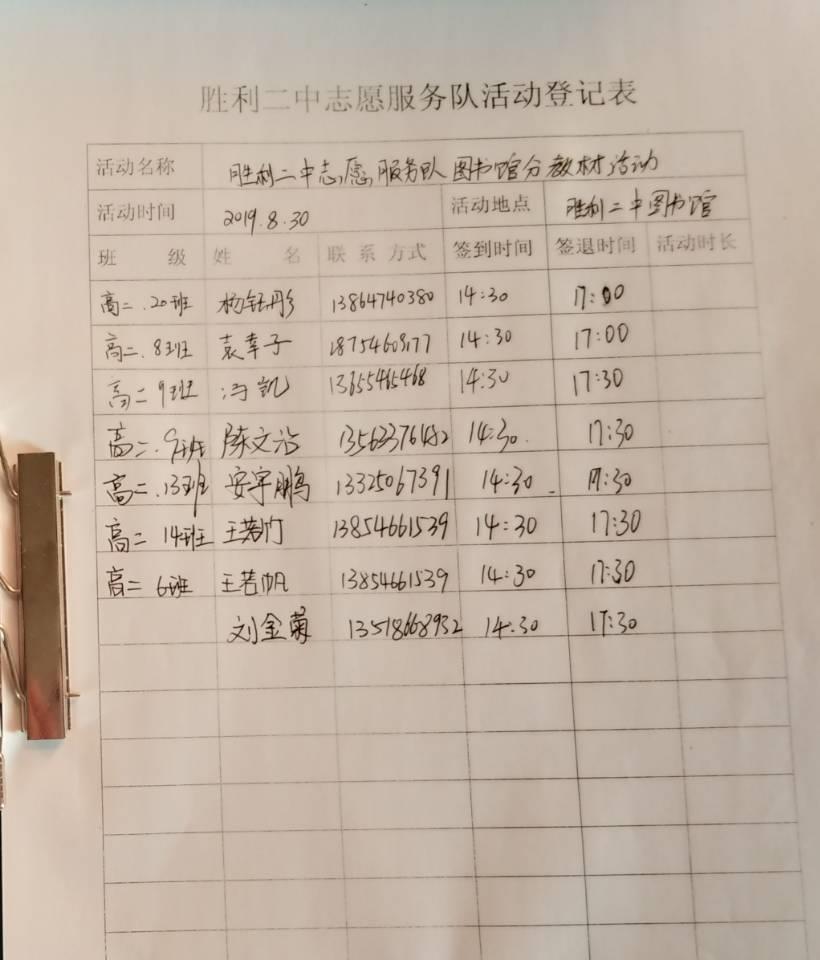 胜利二中志愿服务队活动登记表
活动名称 胜利二中志愿服务队图书馆分教材活动
活动时间 2019.8.30 活动地点 胜利二中图书馆
班 级 姓 名 联 系 方式 签到时间 签退时间 活动时长
高二.20班 杨钰彤 13864740380 14:30 17:00
高二.8班 袁幸子 18754609177 14:30 17:00
高二9班 冯凯 13655465468 14:30 17:30
高二.9班 陈文浩 14:30. 17:30
高二.13班 安宇鹏 13325067391 14:30 17:30
高二 14班 王若 13854661539 14:30 17:30
高二 6班 王若帆 13854661539 14:30 17:30
刘金菊 13518668932 14:30 17:30